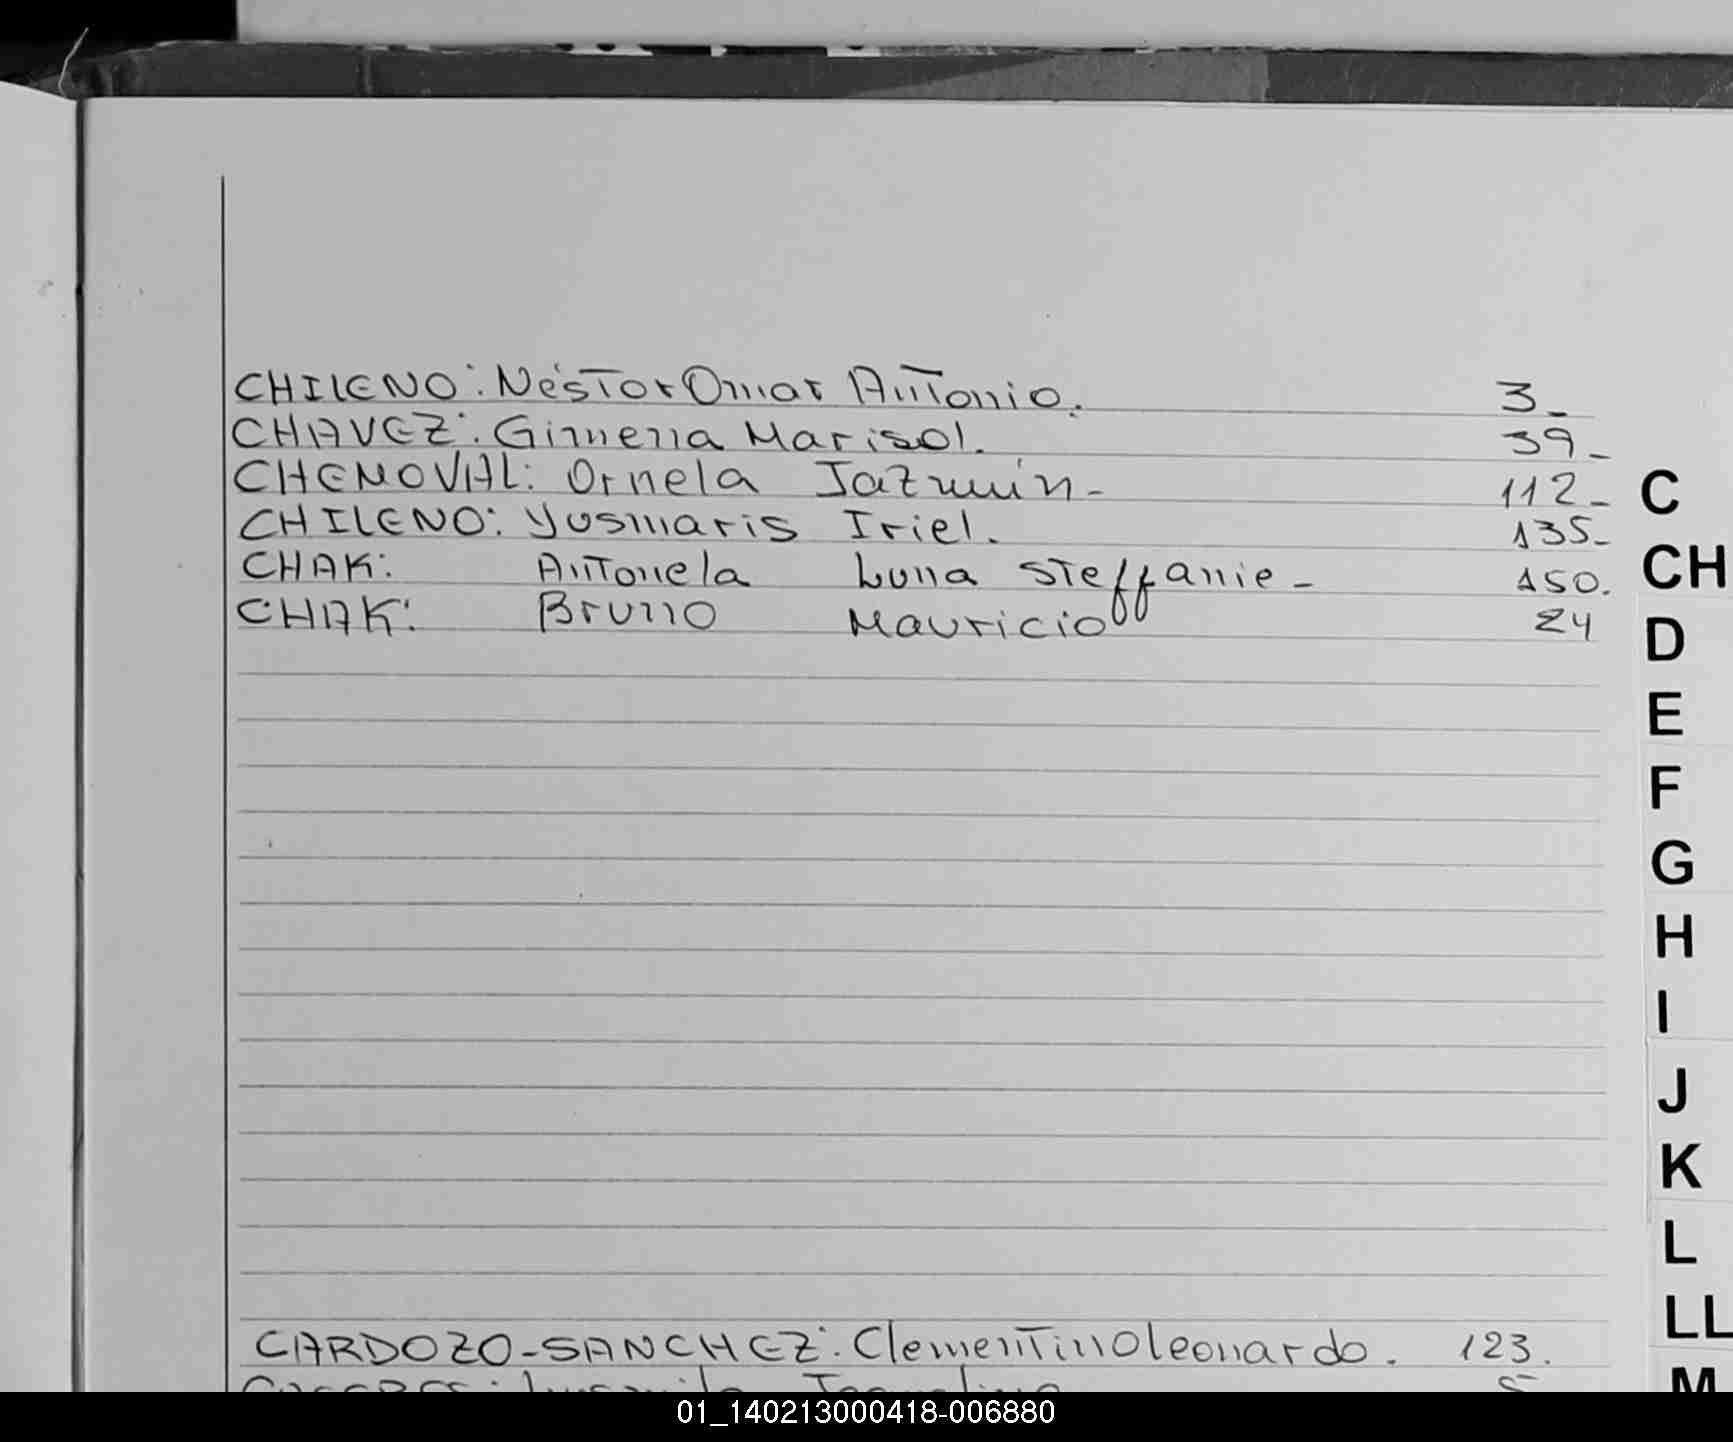 CHILENO: Néstor Omar Antonio. 3_
CHAVEZ: Gimena Marisol. 39_
CHENOVAL: Ornela Jazmín- 112_
CHILENO: Yusmaris Iriel. 135_
CHAK: Antonela Luna Steffanie- 150.
CHAK: Bruno Mauricio 24
CARDOZO-SANCHEZ: Clementino Leonardo. 123.
C
CH
D
E
F
G
H
I
J
K
L
LL
M
01_140213000418-006880